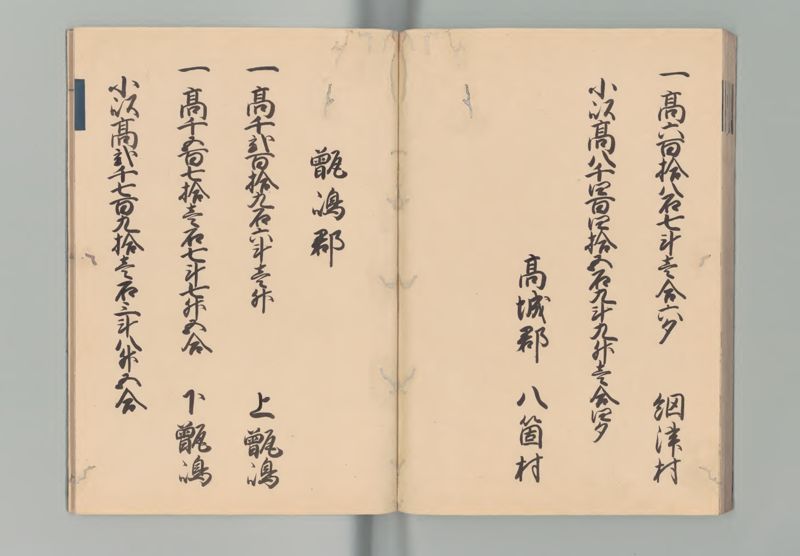 一高六百拾八石七斗壱合六夕 網津村
小以高八千四百四拾五石九斗九升壱合四夕
高城郡 八箇村
甑嶋郡
一高千弐百拾九石六斗壱升 上甑嶋
一高千五百七拾壱石七斗七升五合 下甑嶋
小以高弐千七百九拾壱石三斗八升五合